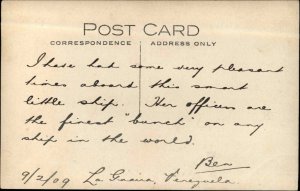 POST CARD
CORRESPONDENCE ADDRESS ONLY
I have had some very pleasant
times aboard this smart
little ship. Her officers are
the finest "bunch" on any
ship in the world.
Ben
9/2/09 La Guaira, Venezuela.